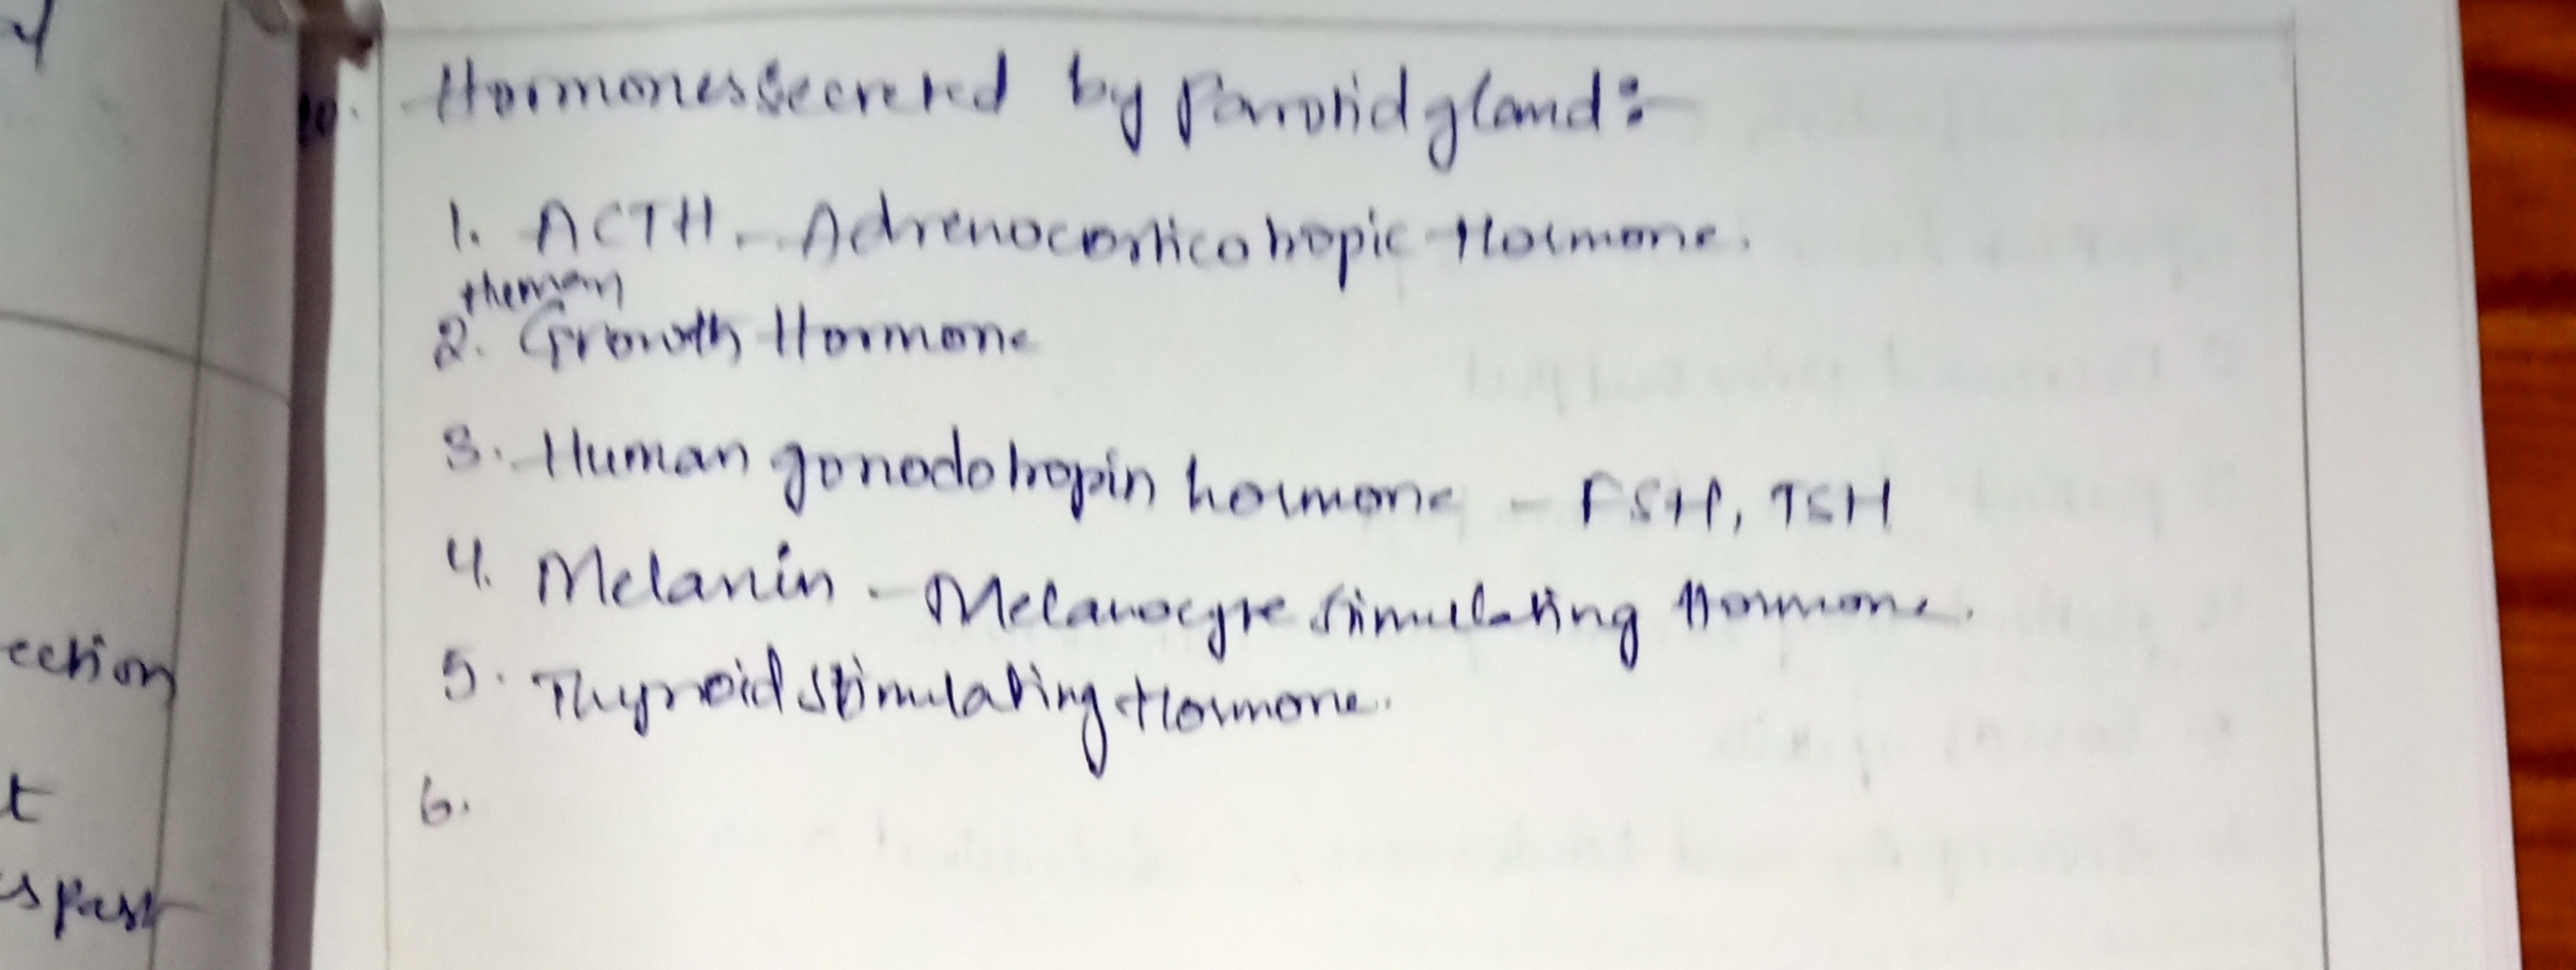 10. Hormones secreted by Parotid gland :-
1. ACTH - Adrenocorticotropic Hormone.
Human
2. Growth Hormone
3. Human gonodotropin hormone - FSH, TSH
4. Melanin - Melanocyte stimulating Hormone.
5. Thyroid stimulating Hormone.
6.
ection
t
s past